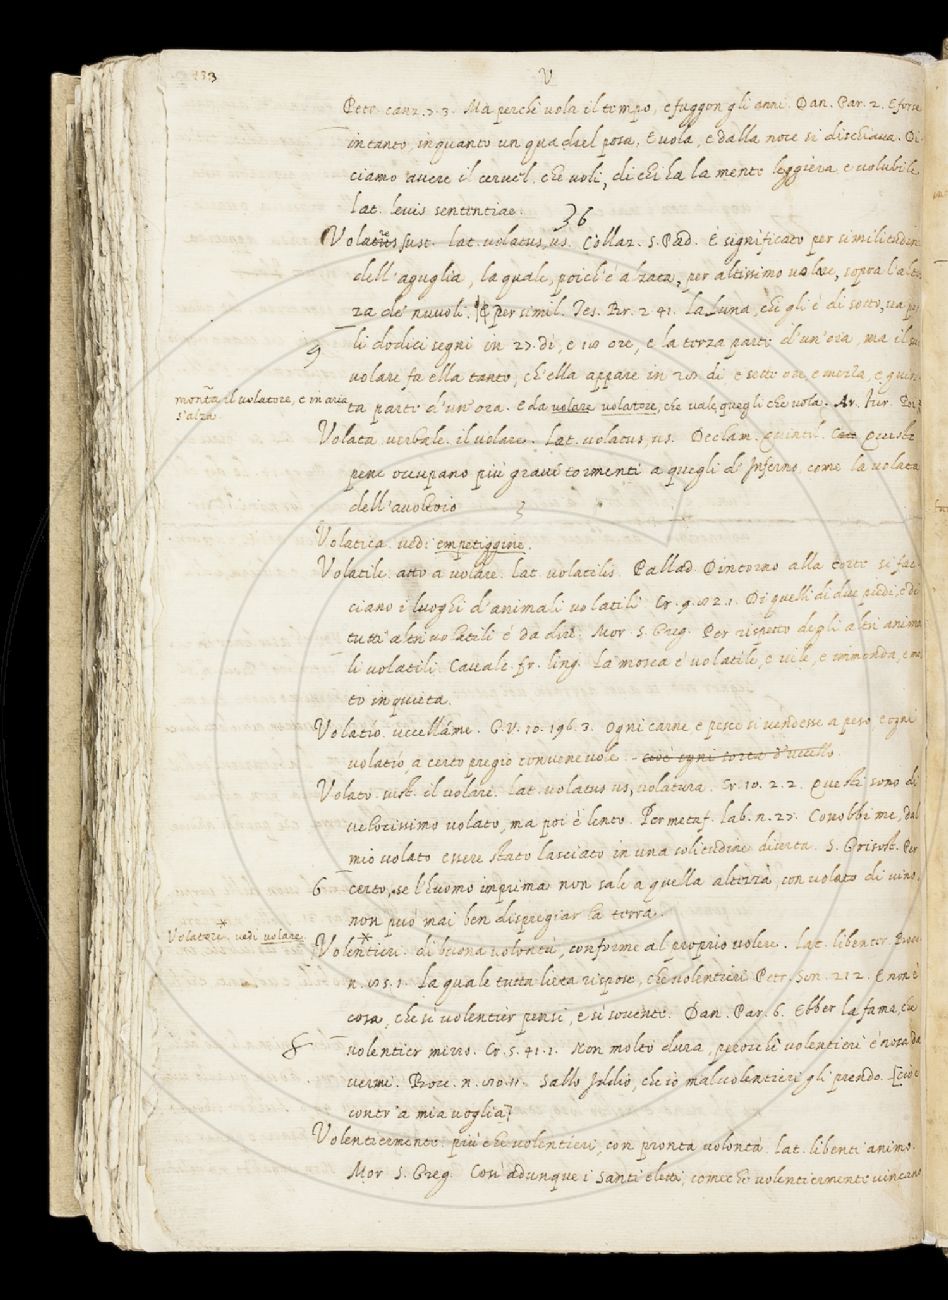 V
Petr. canz. 7. 3. Ma perchè vola il tempo, e fuggon gli anni. Dan. Par. 2. E forse
in tanto, in quanto un quadrel posa, E vola, e dalla noce si dischiava. Di-
ciamo avere il cervel, che voli, di chi ha la mente leggiera e volubile.
lat. levis sententiae.
36
sust. lat. volatus, us. Collaz. S. Pad. È significato per similitudine
dell'aguglia, la quale, poich'è alzata, per altissimo volare, sopra l'altez
za de' nuvoli. per simil. Tes. Br. 2. 41. la Luna, che gli è di sotto, va per
9
li dodici segni in 27. dì, e ore, e la terza parte d'un'ora, ma il suo
volare fa ella tanto, ch'ella appare in dì e sette ore e mezza, e quin
montã, il volatore, e in aria
s'alza
ta parte d'un'ora. E da volare volatore, che vale, quegli che vola. Ar. fur.
Volata verbale. il volare. Lat. volatus, us. Declam. Quintil. Queste
pene occupano più gravi tormenti a quegli d'Inferno, come la volata
dell'avoltoio
Volatica. vedi empetiggine.
Volatile. atto a volare. lat. volatilis. Pallad. Dintorno alla corte si fac
ciano i luoghi d'animali volatili Cr. 9. 2. 1. Di quelli di due piedi, e di
tutti altri volatili è da dire. Mor. S. Greg. Per rispetto degli altri anima
li volatili. Cavalc. fr. ling. La mosca è volatile, e vile, e immonda, e mol
to inquieta.
Volatío. uccelláme. G. V. 10. 196. 3. Ogni carne e pesce si vendesse a peso, e ogni
volatío a certo pregio convenevole. cioè ogni sorta d'uccello
Volato. sust. il volare. lat. volatus us, volatura. Cr. 10. 2. 2. Questi sono di
velocissimo volato, ma poi è lento. Per metaf. lab. n. 27. Conobbi me, dal
mio volato essere stato lasciato in una solitudine diserta. S. Grisost. Per
6
certo, se l'huomo imprima non sale a quella altezza, con volato di vino,
non può mai ben dispregiar la terra.
Volatore* vedi volare.
Volentieri. di buona volontà, conforme al proprio volere. lat. libenter. Bocc.
n. 5. 1. La quale tutta lieta rispose, che volentieri Petr. Son. 212. E non è
cosa, che sì volentier pensi, e sì sovente. Dan. Par. 6. Ebber la fama, che
8
volentier mirro. Cr. 5. 41. 1. Non molto dura, perocchè volentieri è rosa da
vermi. Bocc. n. Sallo Iddio, che io mal volentieri gli prendo. [cioè
contr'a mia voglia]
Volentieremente. più che volentieri, con pronta volontà. lat. libenti animo.
Mor. S. Greg. Così adunque i santi eletti, comechè volentieremente vincano